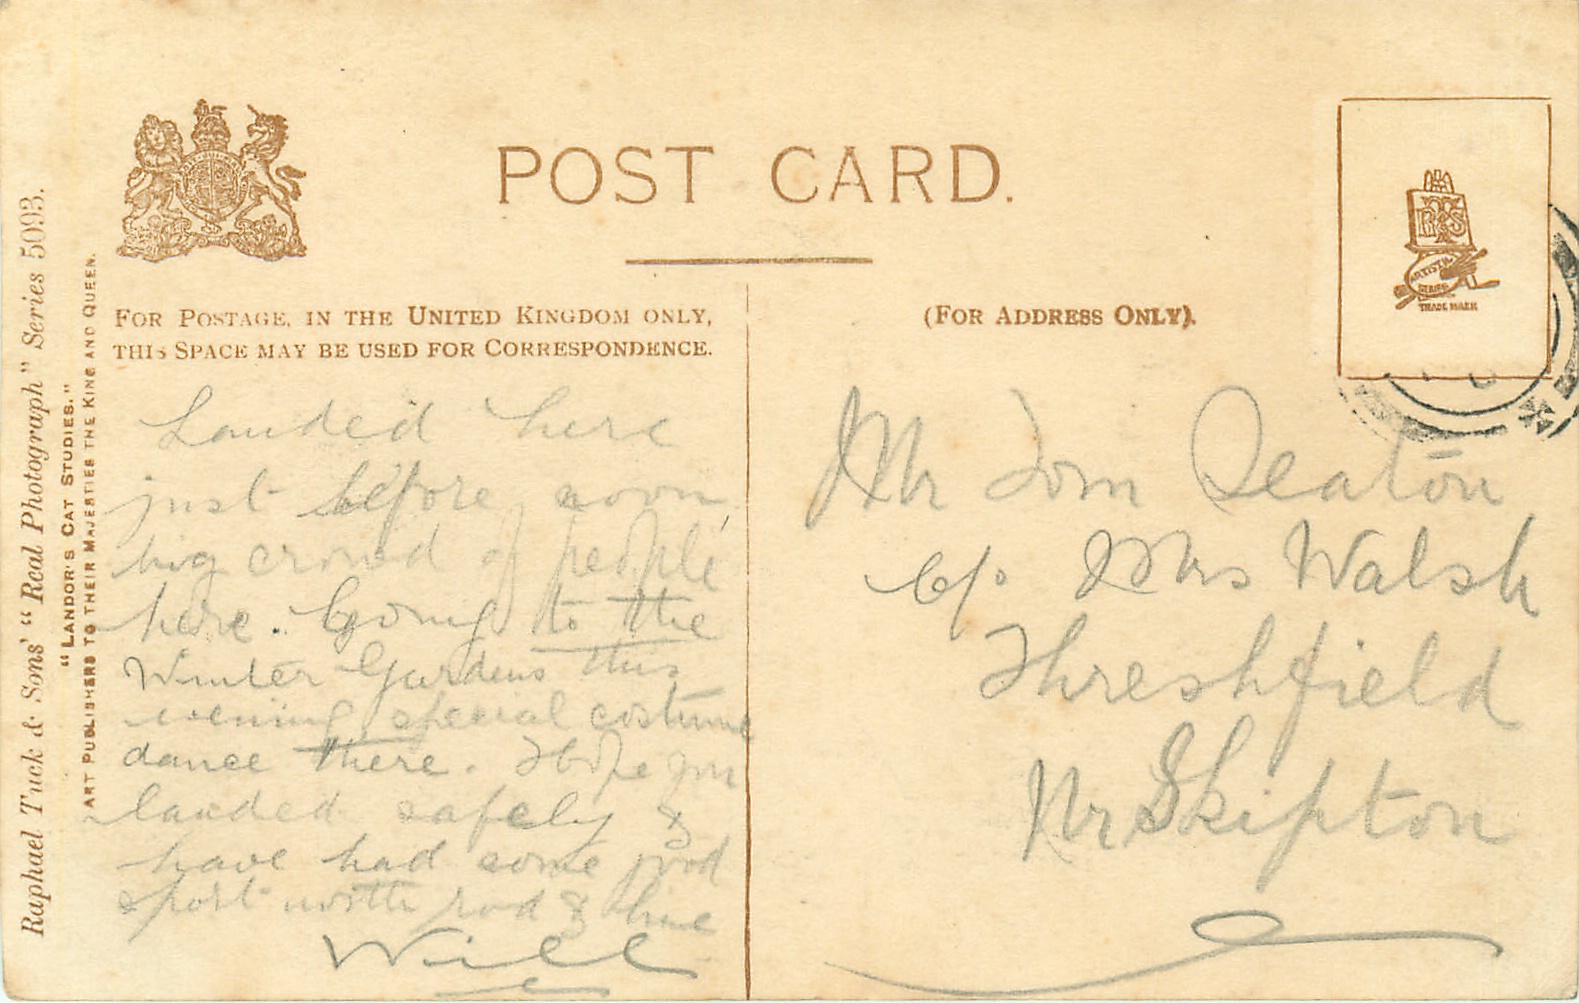 POST CARD.
FOR POSTAGE, IN THE UNITED KINGDOM ONLY,
THIS SPACE MAY BE USED FOR CORRESPONDENCE.
(FOR ADDRESS ONLY).
RTS
ARTISTIC
SERIES
TRADE MARK
Raphael Tuck & Sons' "Real Photograph" Series 5093.
"LANDOR'S CAT STUDIES."
ART PUBLISHERS TO THEIR MAJESTIES THE KING AND QUEEN.
Landed here
just before noon
big crowd of people
here. Going to the
Winter Gardens this
evening special costume
dance there. Hope you
landed safely &
have had some good
sport with rod & line
Will
Mr Tom Seaton
c/o Mrs Walsh
Threshfield
Nr Skipton